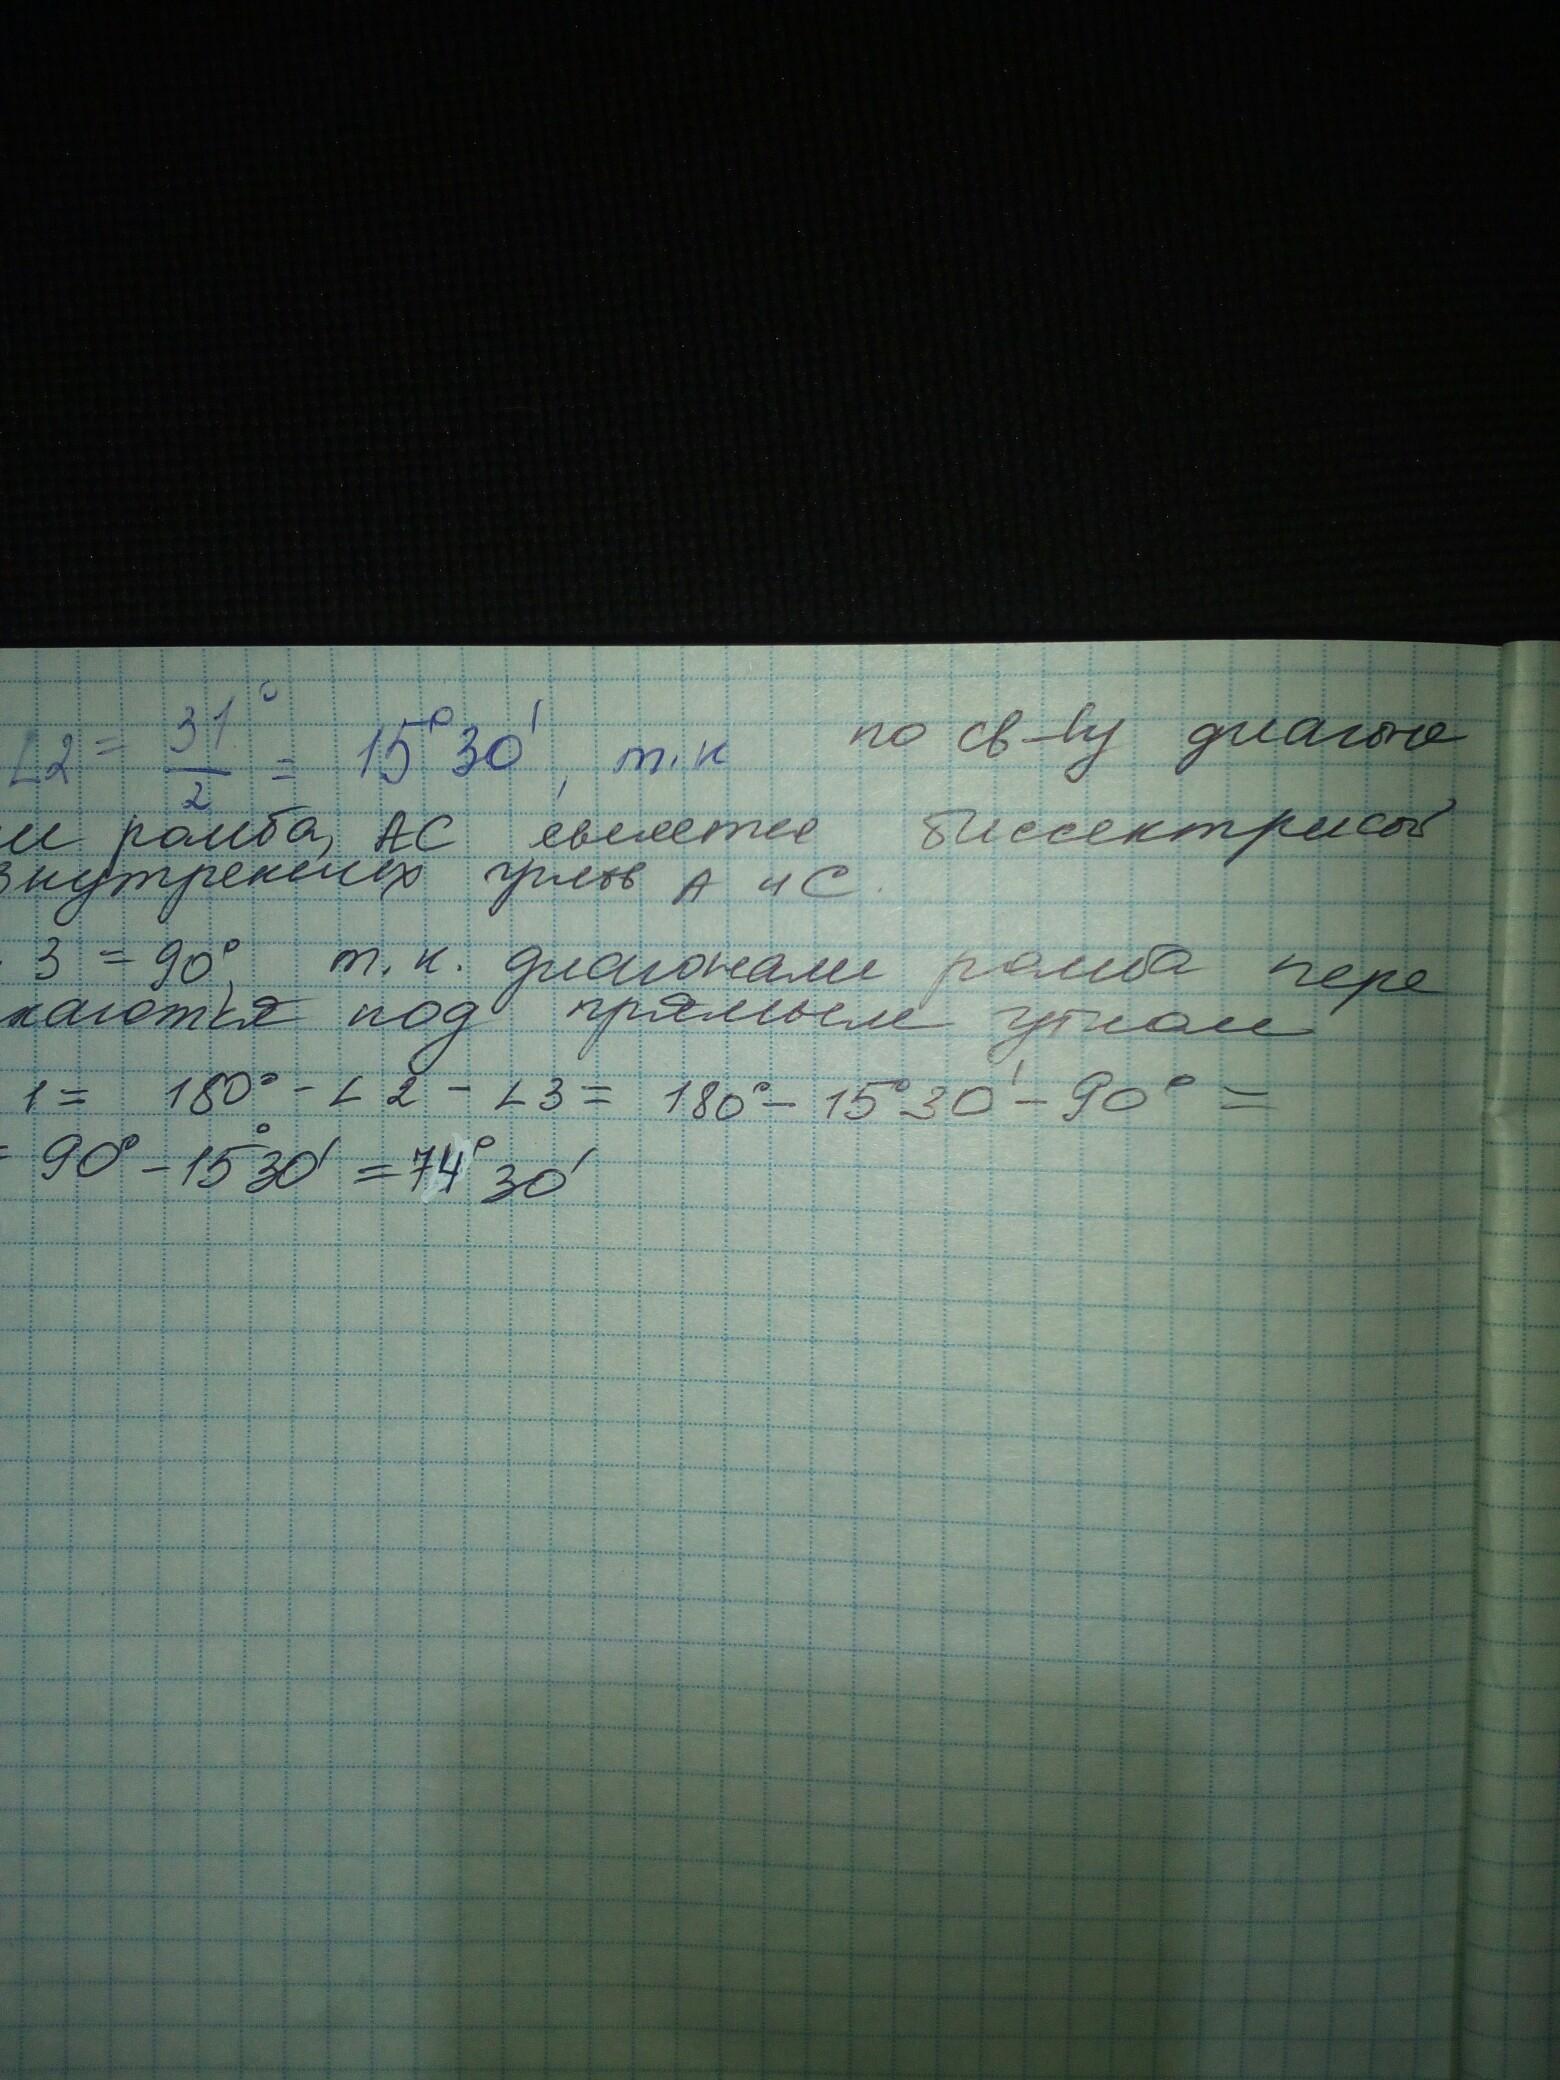 ∠2 = 31°/2 = 15°30', т.к по св-ву диагона
ли ромба, АС является биссектрисой
внутрених углов А и С.
3 = 90°, т.к. диагонали ромба пере
каются под прямым углом
1 = 180° - ∠2 - ∠3 = 180° - 15°30' - 90° =
= 90° - 15°30' = 74°30'